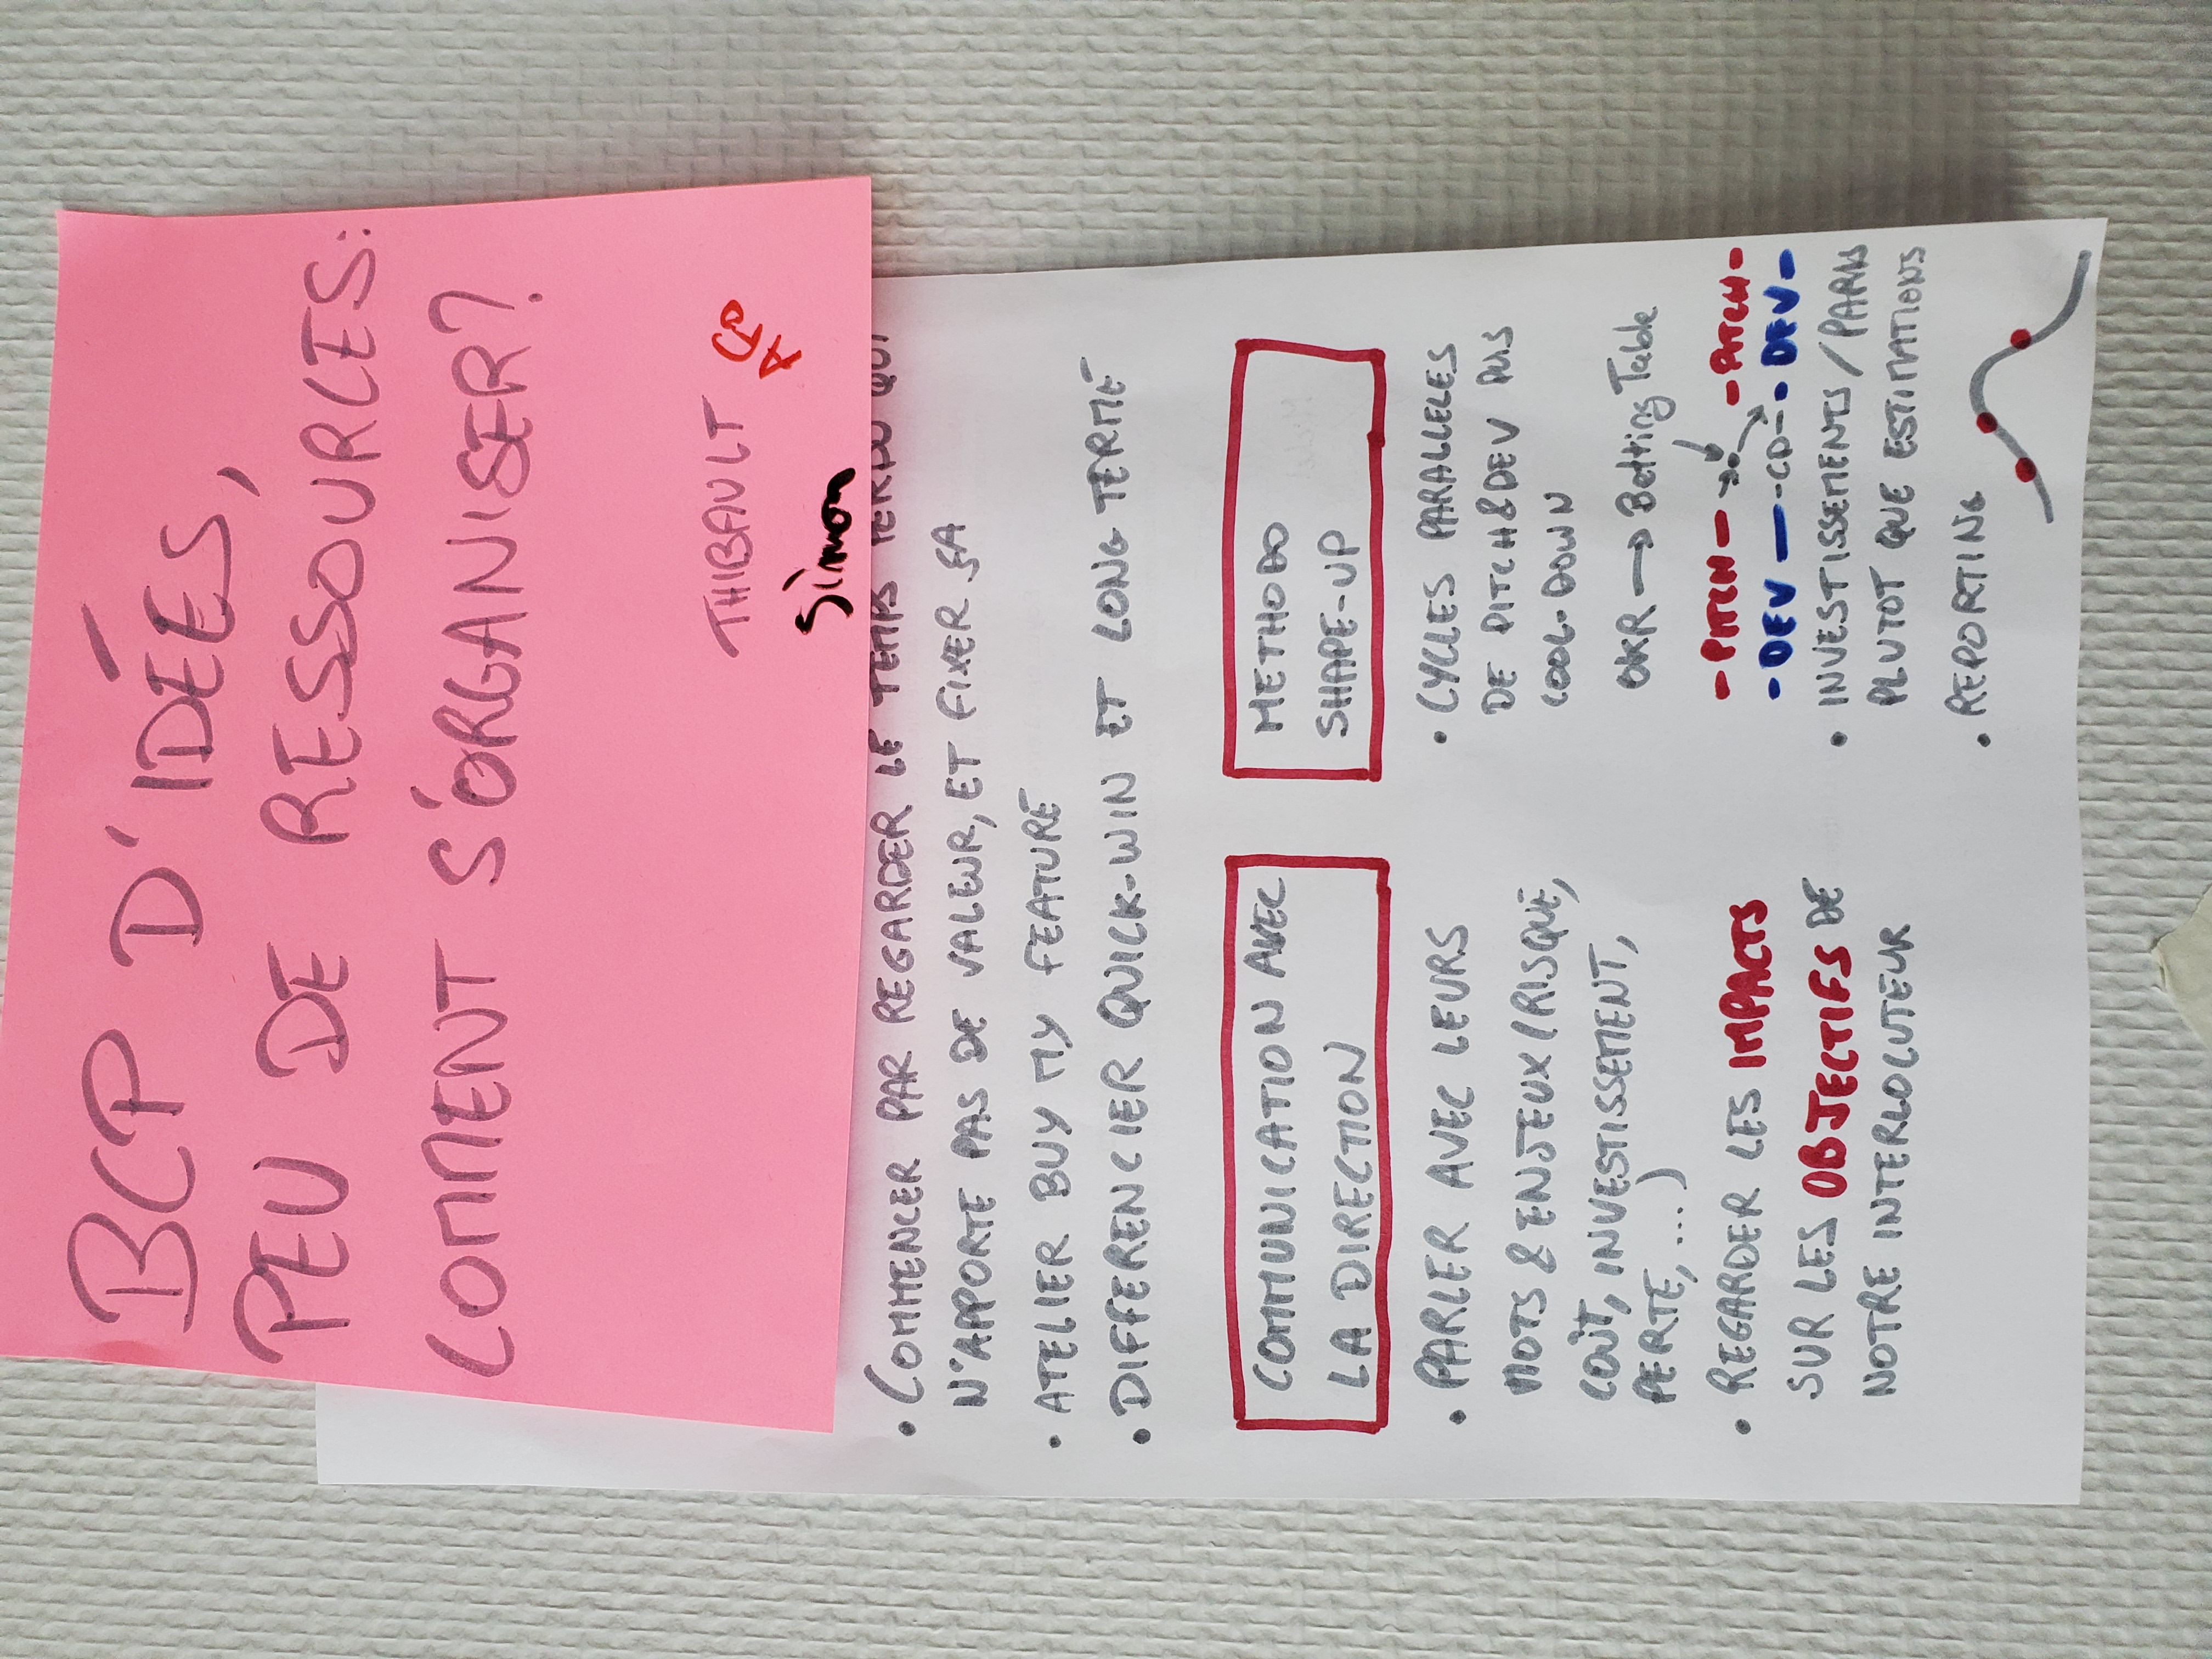 BCP D'IDÉES,
PEU DE RESSOURCES:
COMMENT S'ORGANISER?
THIBAULT
AFO
Simon
• COMMENCER PAR REGARDER LE TEMPS PERDU QUI
N'APPORTE PAS DE VALEUR, ET FIXER ÇA
• ATELIER BUY MY FEATURE
• DIFFERENCIER QUICK-WIN ET LONG TERME
COMMUNICATION AVEC
LA DIRECTION
• PARLER AVEC LEURS
MOTS & ENJEUX (RISQUE,
COÛT, INVESTISSEMENT,
PERTE, ...)
• REGARDER LES IMPACTS
SUR LES OBJECTIFS DE
NOTRE INTERLOCUTEUR
METHODO
SHAPE-UP
• CYCLES PARALLELES
DE PITCH & DEV PUIS
COOL-DOWN
OKR → Betting Table
- PITCH - - PITCH -
- DEV - -CD- - DEV -
• INVESTISSEMENTS / PARIS
PLUTOT QUE ESTIMATIONS
• REPORTING